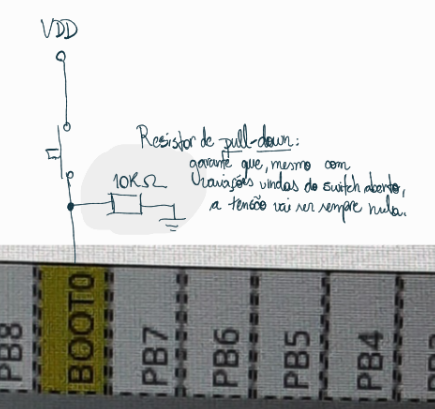 VDD
Resistor de pull-down:
garante que, mesmo com
variações vindas do switch aberto,
10KΩ
a tensão vai ser sempre nula.
PB8
BOOT0
PB7
PB6
PB5
PB4